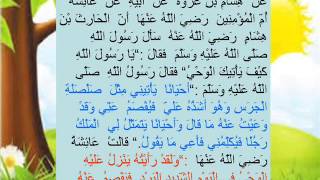 عَنْ هِشَامِ بْنِ عُرْوَةَ عَنْ أَبِيهِ عَنْ عَائِشَةَ
أُمِّ الْمُؤْمِنِينَ رَضِيَ اللَّهُ عَنْهَا أَنَّ الْحَارِثَ بْنَ
هِشَامٍ رَضِيَ اللَّهُ عَنْهُ سَأَلَ رَسُولَ اللَّهِ
صَلَّى اللَّهُ عَلَيْهِ وَسَلَّمَ فَقَالَ :“يَا رَسُولَ اللَّهِ
كَيْفَ يَأْتِيكَ الْوَحْيُ” فَقَالَ رَسُولُ اللَّهِ صَلَّى
اللَّهُ عَلَيْهِ وَسَلَّمَ :“أَحْيَانًا يَأْتِينِي مِثْلَ صَلْصَلَةِ
الْجَرَسِ وَهُوَ أَشَدُّهُ عَلَيَّ فَيُفْصَمُ عَنِّي وَقَدْ
وَعَيْتُ عَنْهُ مَا قَالَ وَأَحْيَانًا يَتَمَثَّلُ لِي الْمَلَكُ
رَجُلًا فَيُكَلِّمُنِي فَأَعِي مَا يَقُولُ.” قَالَتْ عَائِشَةُ
رَضِيَ اللَّهُ عَنْهَا :“وَلَقَدْ رَأَيْتُهُ يَنْزِلُ عَلَيْهِ
الْوَحْيُ فِي الْيَوْمِ الشَّدِيدِ الْبَرْدِ فَيَفْصِمُ عَنْهُ